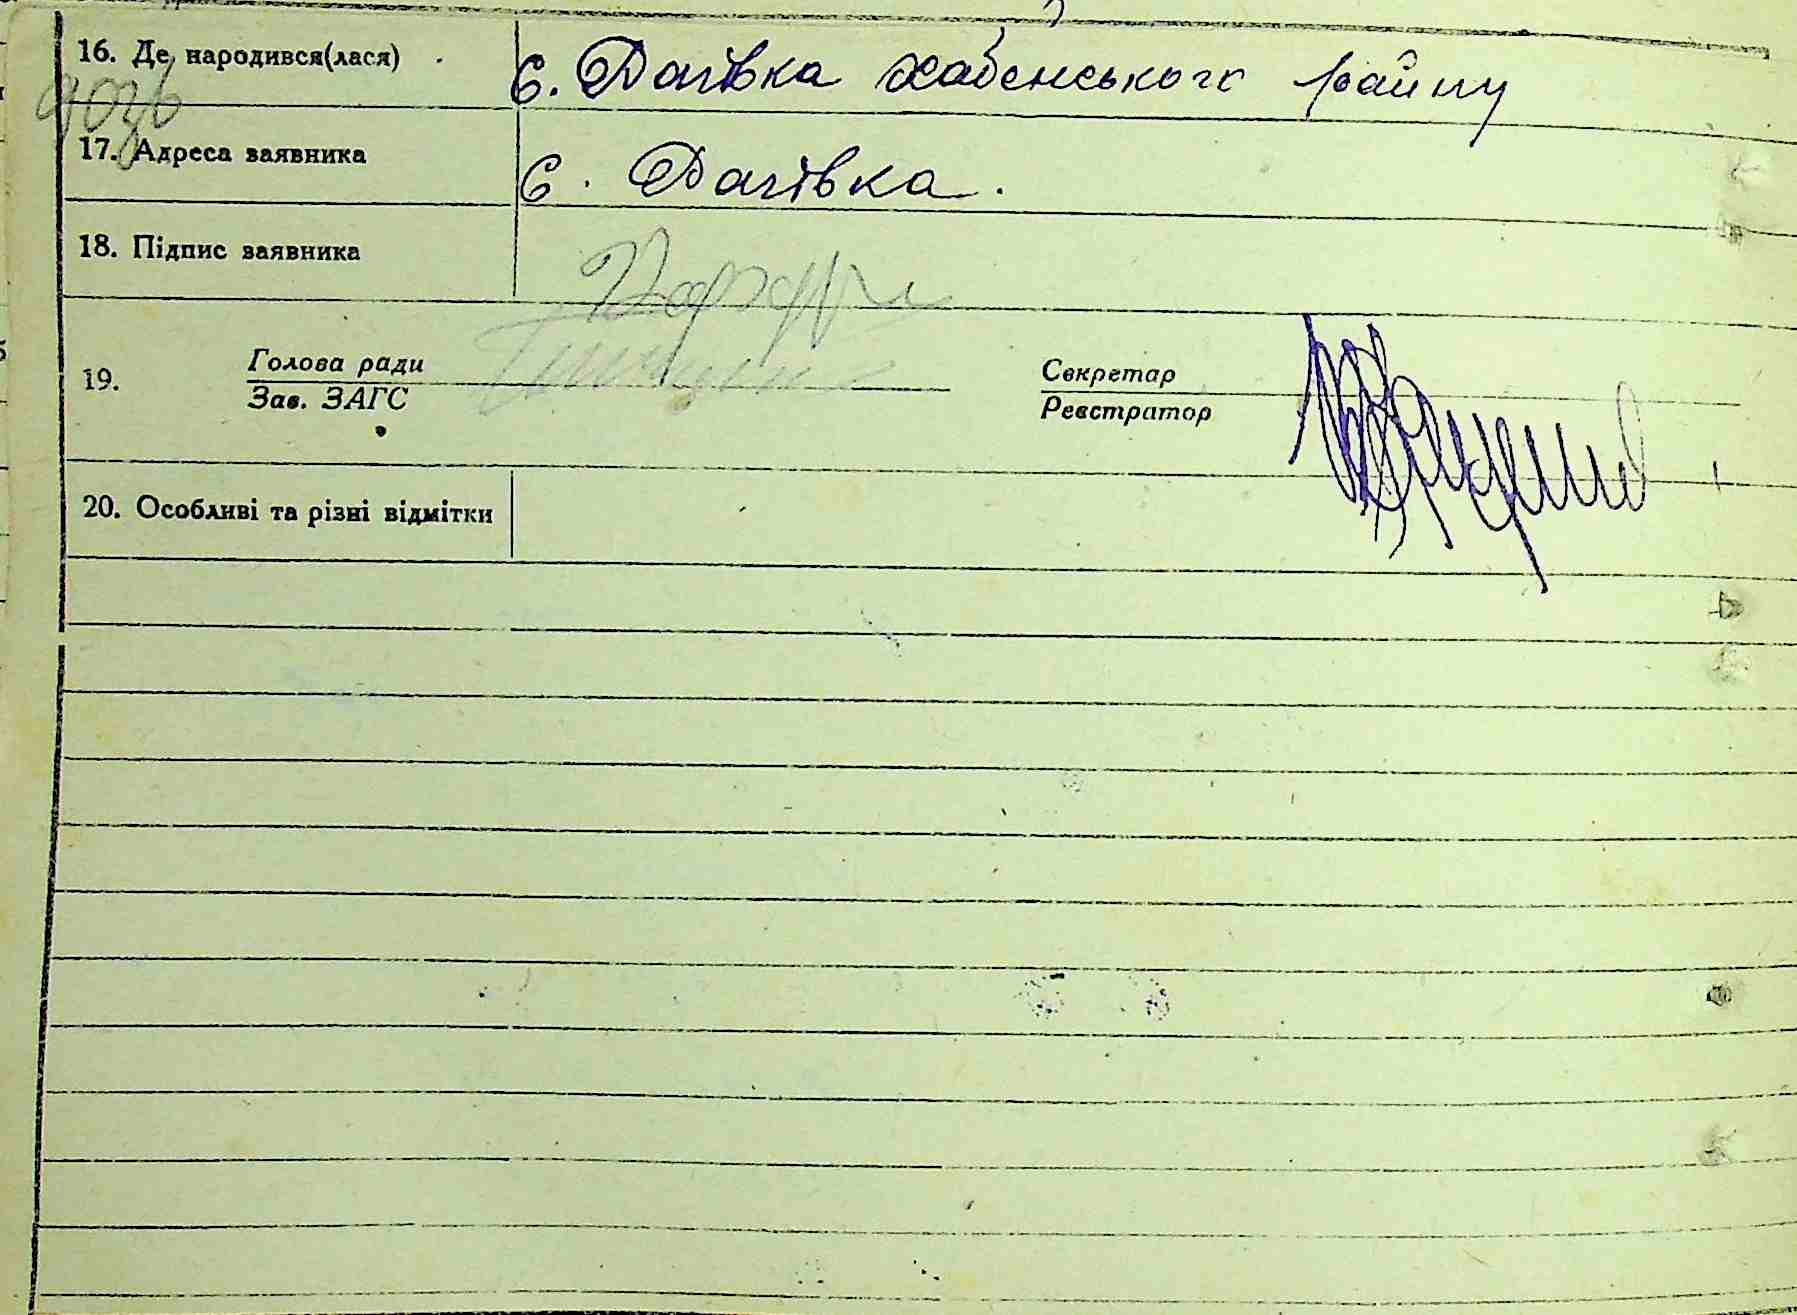 16. Де народився(лася) с. Рагівка Хабенського району
17. Адреса заявника с. Рагівка.
18. Підпис заявника
19. Голова ради Секретар
Зав. ЗАГС Реєстратор
20. Особливі та різні відмітки